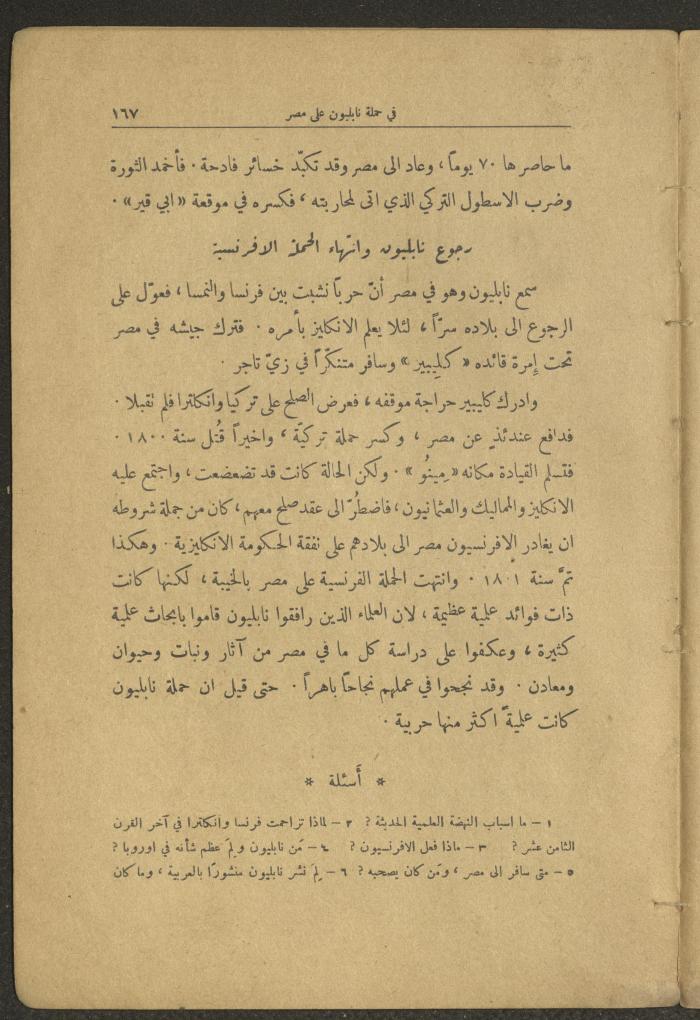 في حملة نابليون على مصر ١٦٧
ما حاصرها ٧٠ يوماً، وعاد الى مصر وقد تكبّد خسائر فادحة. فأخمد الثورة
وضرب الاسطول التركي الذي اتى لمحاربته، فكسره في موقعة «ابي قير».
رجوع نابليون وانتهاء الحملة الافرنسية
سمع نابليون وهو في مصر أنّ حرباً نشبت بين فرنسا والنمسا، فعوّل على
الرجوع الى بلاده سرّاً، لئلا يعلم الانكليز بأمره. فترك جيشه في مصر
تحت إمرة قائده «كليبير» وسافر متنكّراً في زيّ تاجر.
وادرك كليبير حراجة موقفه، فعرض الصلح على تركيا وانكلترا فلم تقبلا.
فدافع عندئذٍ عن مصر، وكسر حملة تركيّة، واخيراً قُتل سنة ١٨٠٠.
فتسلم القيادة مكانه «مِينُو». ولكن الحالة كانت قد تضعضعت، واجتمع عليه
الانكليز والمماليك والعثمانيون، فاضطُرّ الى عقد صلح معهم، كان من جملة شروطه
ان يغادر الافرنسيون مصر الى بلادهم على نفقة الحكومة الانكليزية. وهكذا
تمّ سنة ١٨٠١. وانتهت الحملة الفرنسية على مصر بالخيبة، لكنها كانت
ذات فوائد علمية عظيمة، لان العلماء الذين رافقوا نابليون قاموا بابحاث علمية
كثيرة، وعكفوا على دراسة كل ما في مصر من آثار ونبات وحيوان
ومعادن. وقد نجحوا في عملهم نجاحاً باهراً. حتى قيل ان حملة نابليون
كانت علميةً اكثر منها حربية.
* أسئلة *
١ – ما اسباب النهضة العلمية الحديثة؟ ٢ – لماذا تزاحمت فرنسا وانكلترا في آخر القرن
الثامن عشر؟ ٣ – ماذا فعل الافرنسيون؟ ٤ – مَن نابليون ولِمَ عظم شأنه في اوروبا؟
٥ – متى سافر الى مصر، ومَن كان يصحبه؟ ٦ – لِمَ نشر نابليون منشوراً بالعربية، وما كان